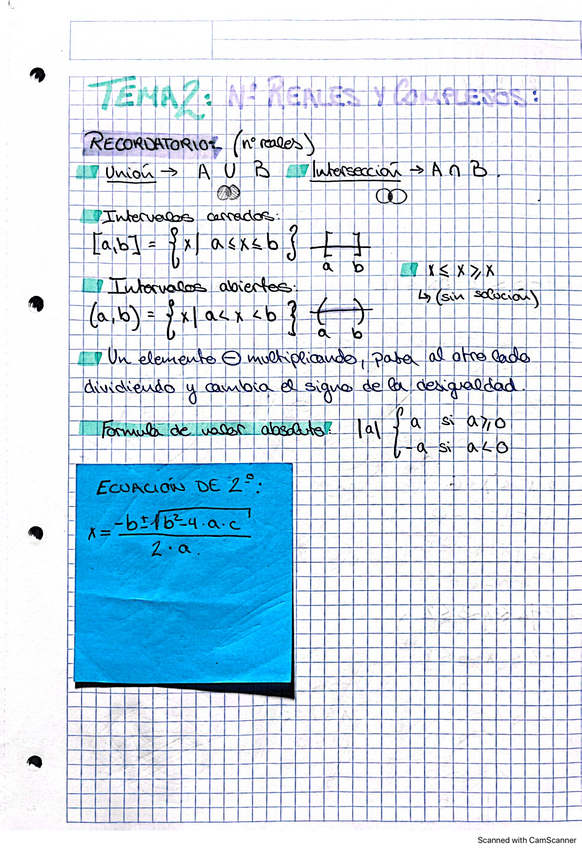 TEMA 2: Nº REALES Y COMPLEJOS:
RECORDATORIO: (nº reales)
Unión → A ∪ B Intersección → A ∩ B.
Intervalos cerrados:
[a,b] = { x | a ≤ x ≤ b } [ ]
a b
x ≤ x ≥ x
↳ (sin solución)
Intervalos abiertos:
(a,b) = { x | a < x < b } ( )
a b
Un elemento ⊖ multiplicando, pasa al otro lado
dividiendo y cambia el signo de la desigualdad.
Formula de valor absoluto: |a| { a si a ≥ 0
-a si a < 0
ECUACIÓN DE 2º:
x = (-b ± √(b²-4·a·c)) / (2·a).
Scanned with CamScanner